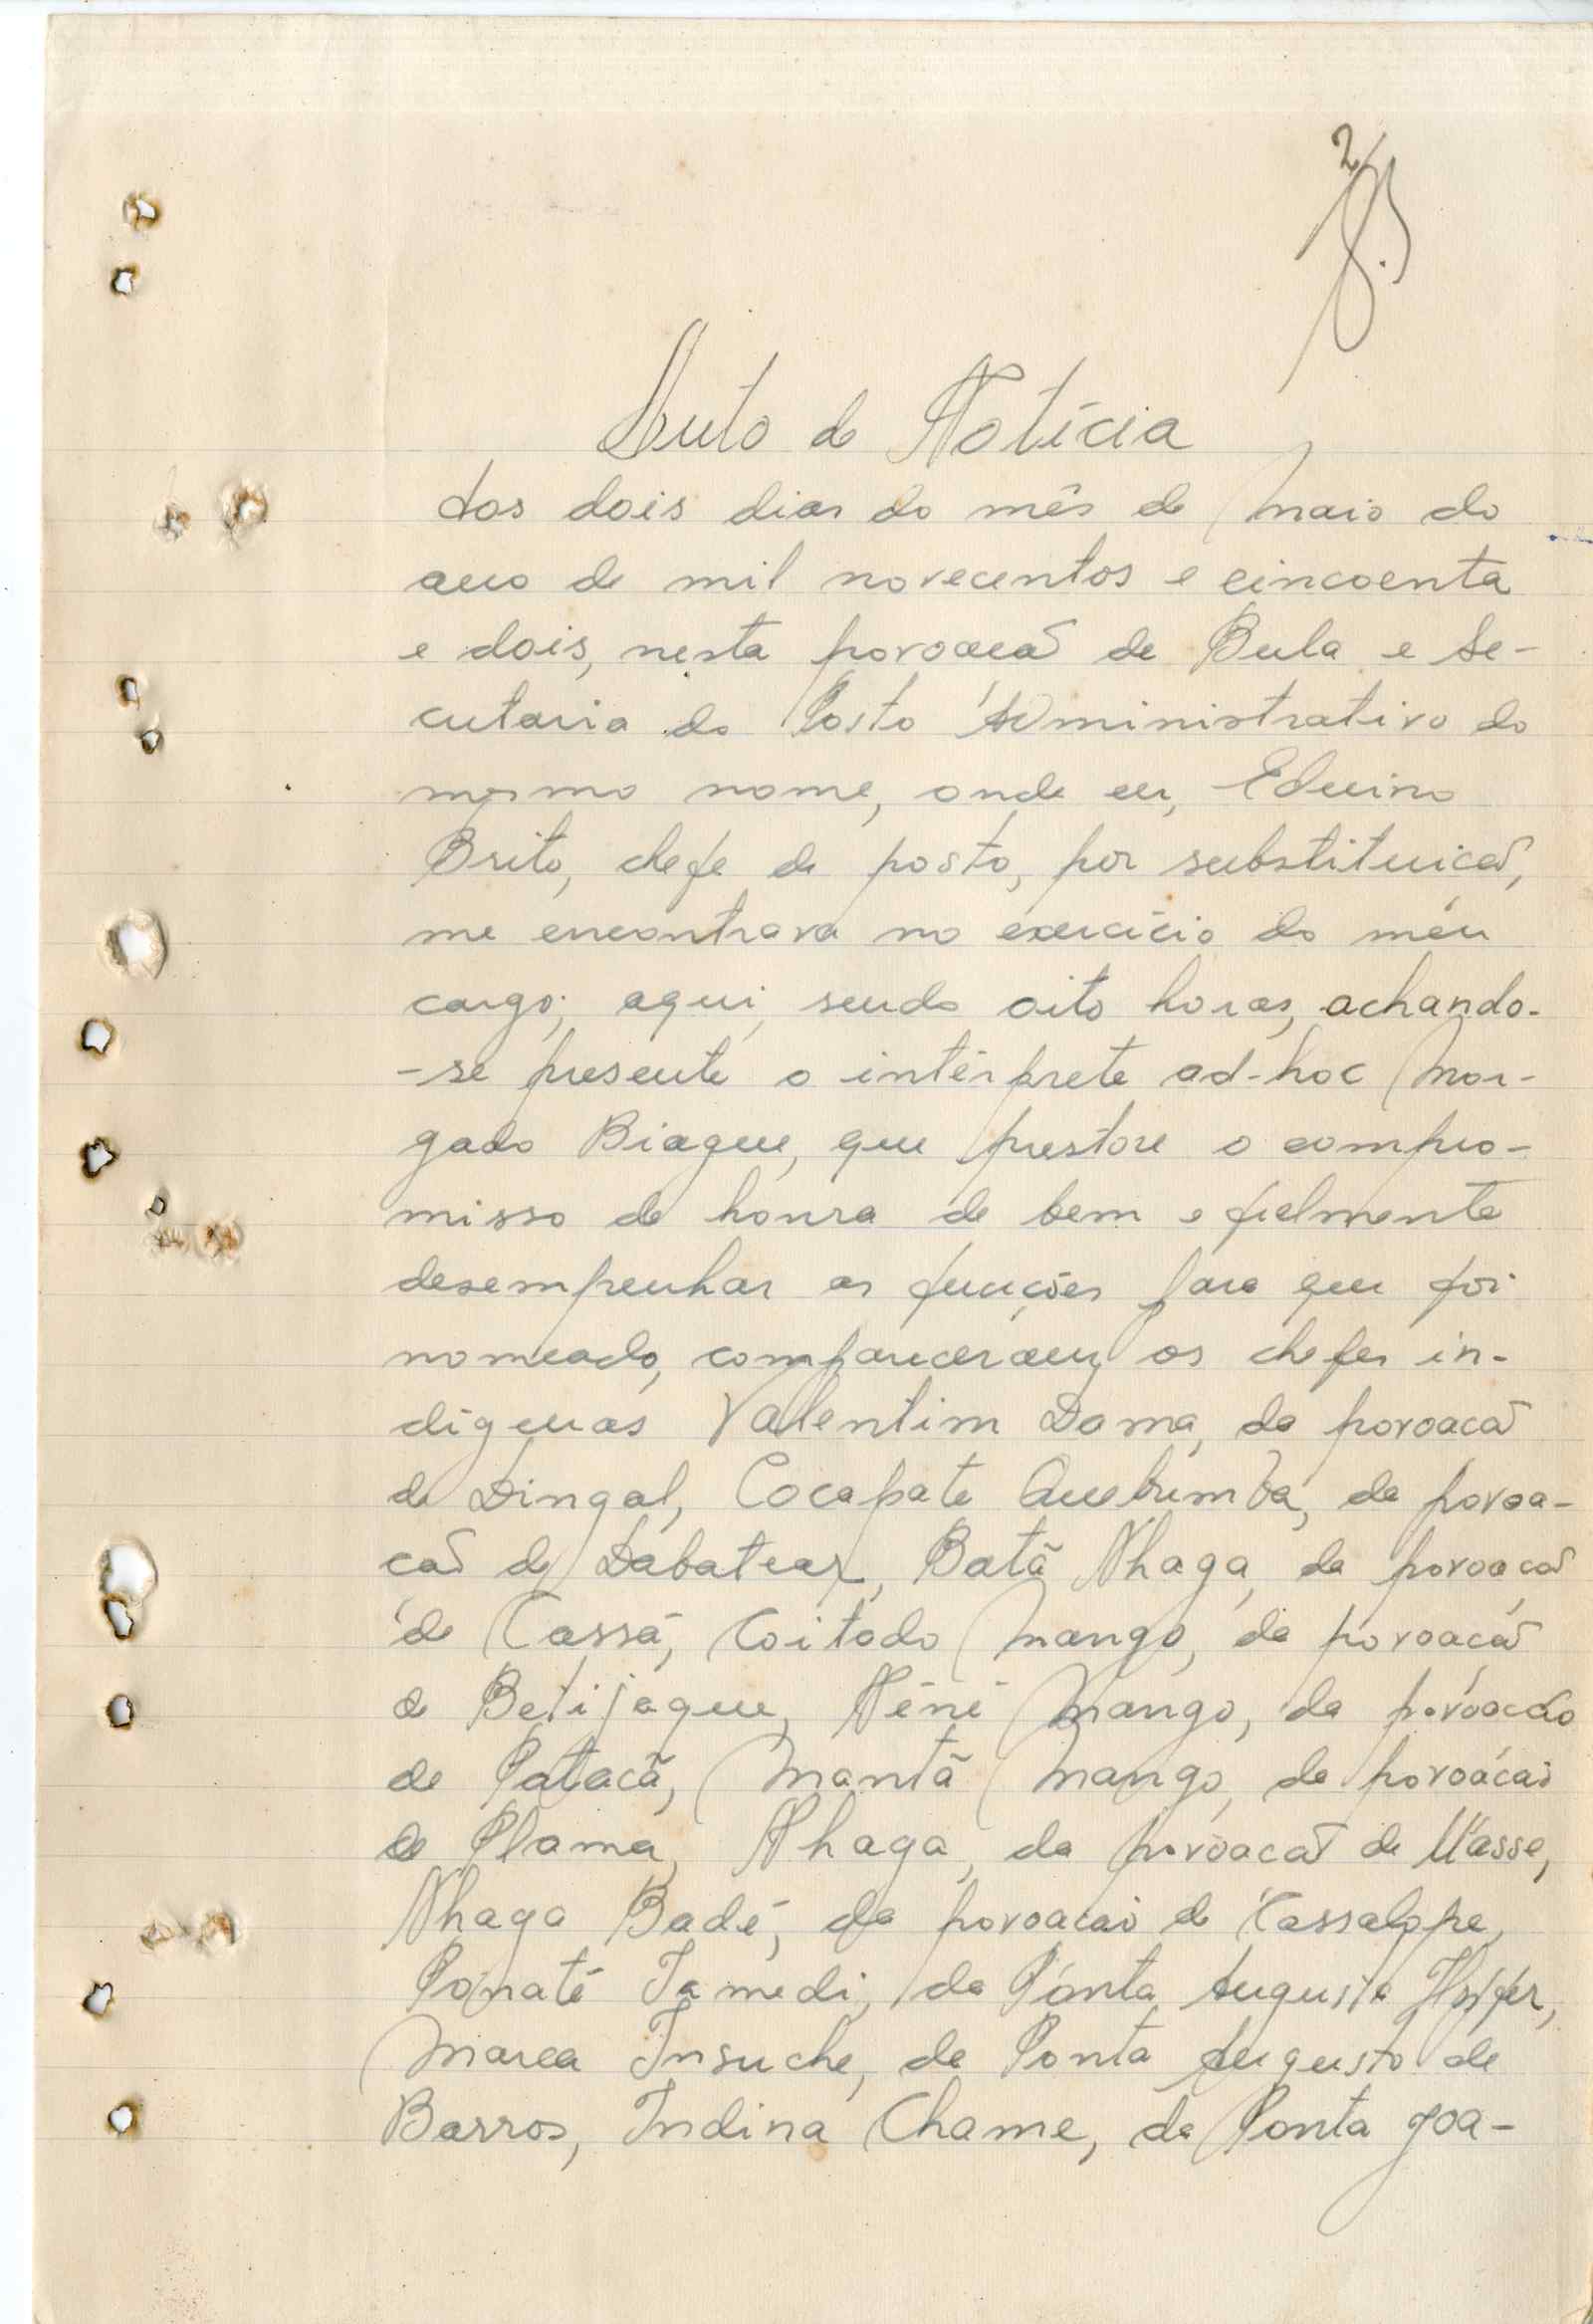 2
Auto de Notícia
Aos dois dias do mês de Maio do
ano de mil novecentos e cincoenta
e dois, nesta povoação de Bula e Se-
cretaria do Posto Administrativo do
mesmo nome, onde eu, Eduino
Brito, chefe de posto, por substituição,
me encontrava no exercício do meu
cargo; aqui, sendo oito horas, achando-
-se presente o intérprete ad-hoc Mor-
gado Biague, que prestou o compro-
misso de honra de bem e fielmente
desempenhar as funções para que foi
nomeado, compareceram os chefes in-
dígenas Valentim Dama, da povoação
de Dingal, Cocapate Quebrimba, da povoa-
ção de Dabatear, Batã Nhaga, da povoação
de Cassá, Coitado Mango, da povoação
de Betijaque, Néné Mango, da povoação
de Patacã, Mantã Mango, da povoação
de Plama, Nhaga, da povoação de Uasse,
Nhaga Badé, da povoação de Cassalope,
Ponaté Jamedi, da Ponta Augusta
Marca Insuche, da Ponta Augusto de
Barros, Indina Chame, da Ponta Joa-